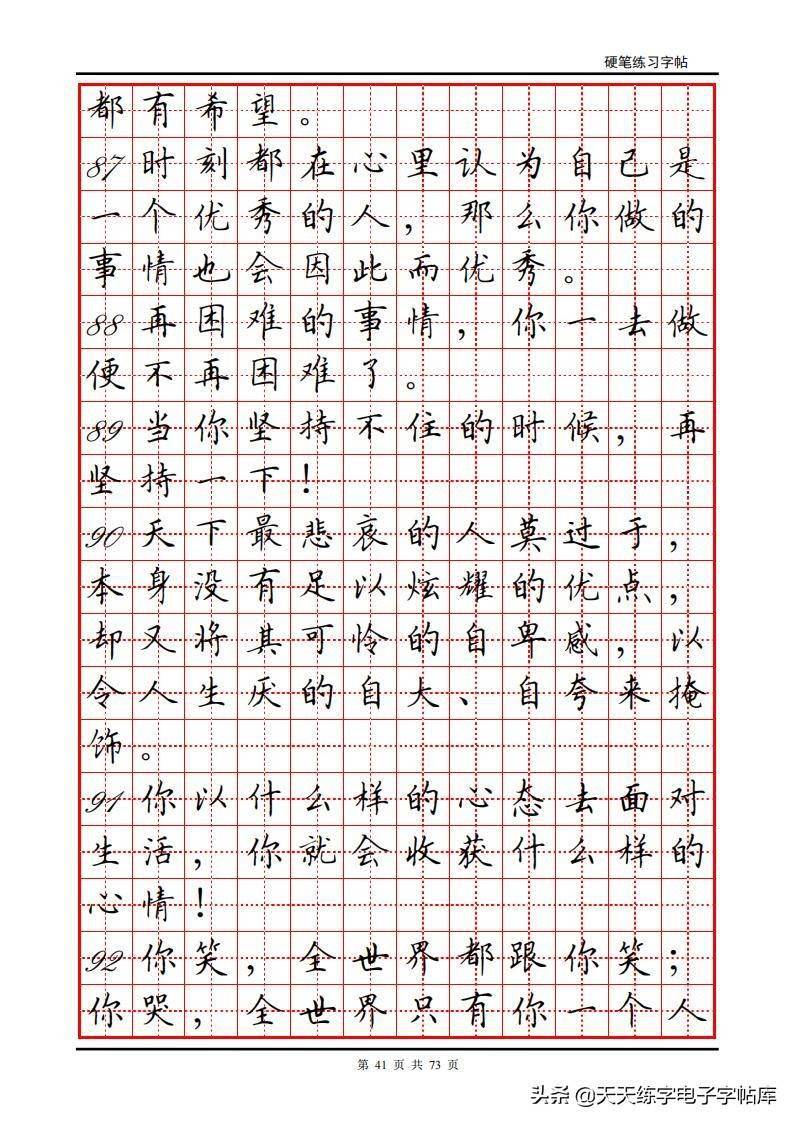 硬笔练习字帖
都有希望。
87时刻都在心里认为自己是
一个优秀的人，那么你做的
事情也会因此而优秀。
88再困难的事情，你一去做
便不再困难了。
89当你坚持不住的时候，再
坚持一下！
90天下最悲哀的人莫过于，
本身没有足以炫耀的优点，
却又将其可怜的自卑感，以
令人生厌的自大、自夸来掩
饰。
91你以什么样的心态去面对
生活，你就会收获什么样的
心情！
92你笑，全世界都跟你笑；
你哭，全世界只有你一个人
第 41 页 共 73 页
头条 @天天练字电子字帖库